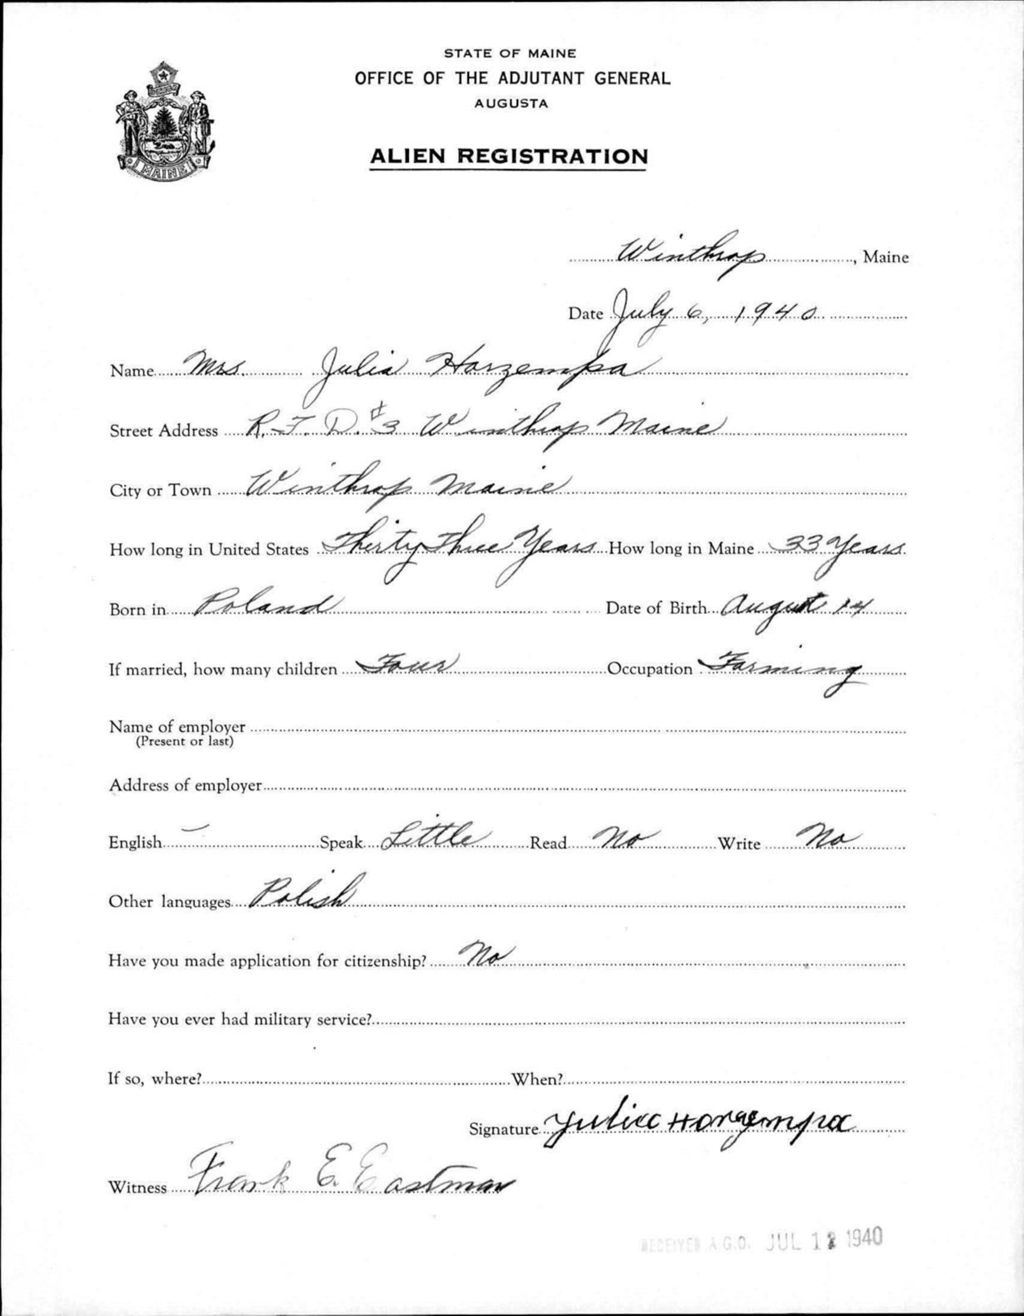 STATE OF MAINE
OFFICE OF THE ADJUTANT GENERAL
AUGUSTA
ALIEN REGISTRATION
MAINE
Winthrop, Maine
Date July 6, 1940
Name Mrs. Julia Horzempa
Street Address R.F.D. #3 Winthrop Maine
City or Town Winthrop Maine
How long in United States Thirty Three Years How long in Maine 33 Years
Born in Poland Date of Birth August 14
If married, how many children Four Occupation Farming
Name of employer
(Present or last)
Address of employer
English — Speak Little Read No Write No
Other languages Polish
Have you made application for citizenship? No
Have you ever had military service?
If so, where? When?
Signature Julia Horzempa
Witness Frank E. Eastman
RECEIVED A.G.O. JUL 1 1940